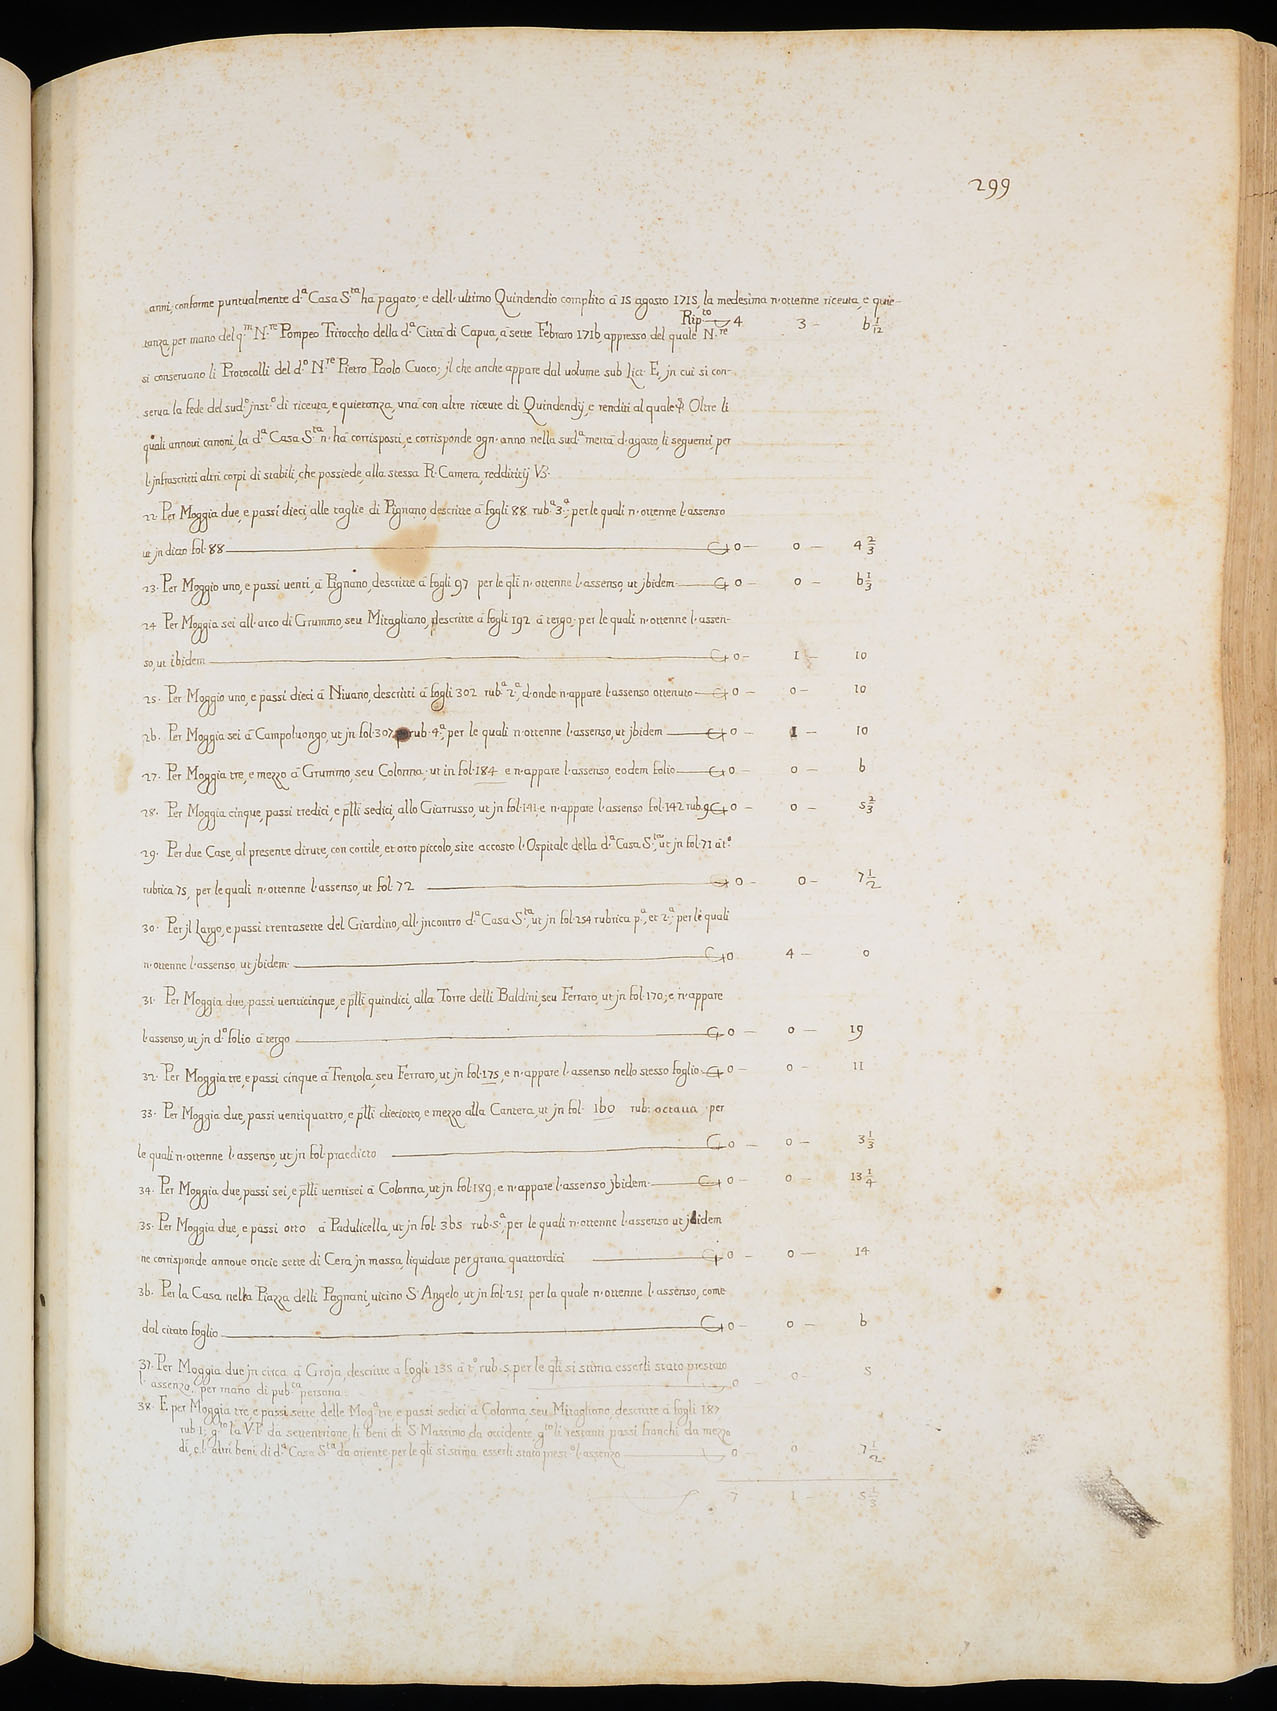 299
anni, conforme puntualmente d.ª Casa S.ta ha pagato, e dell' ultimo Quindendio complito à 15 agosto 1715, la medesima n'ottenne riceuta, e quie-
Rip.to 4 3 — 6 1/12
tanza, per mano del q.m N.re Pompeo Triroccho della d.ª Città di Capua, à sette Febraro 1716, appresso del quale N.re
si conseruano li Protocolli del d.º N.re Pietro Paolo Cuoco; jl che anche appare dal uolume sub Lict. E, jn cui si con-
serua la fede del sud.º jnst.º di riceuta, e quietanza, una con altre riceute di Quindendij, e renditi al quale Oltre li
quali annoui canoni, la d.ª Casa S.ta n'hà corrisposti, e corrisponde ogn'anno nella sud.ª metà d'agosto, li seguenti, per
l'jnfrascritti altri corpi di stabili, che possiede, alla stessa R. Camera, reddititij V3.
22. Per Moggia due, e passi dieci, alle taglie di Pignano, descritte à fogli 88 rub.ª 3.ª, per le quali n'ottenne l'assenso
ut jn dicto fol. 88 0 — 0 — 4 2/3
23. Per Moggio uno, e passi uenti, à Pignano, descritte à fogli 97 per le q'li n'ottenne l'assenso, ut jbidem 0 — 0 — 6 1/3
24. Per Moggia sei all'arco di Grummo, seu Mitagliano, descritte à fogli 192 à tergo, per le quali n'ottenne l'assen-
so, ut ibidem 0 — 1 — 10
25. Per Moggio uno, e passi dieci à Niuano, descritti à fogli 302 rub.ª 2.ª, d'onde n'appare l'assenso ottenuto 0 — 0 — 10
26. Per Moggia sei à Campoluongo, ut jn fol. 307 rub. 4.ª, per le quali n'ottenne l'assenso, ut jbidem 0 — 1 — 10
27. Per Moggia tre, e mezzo à Grummo, seu Colonna, ut in fol. 184 e n'appare l'assenso, eodem folio 0 — 0 — 6
28. Per Moggia cinque, passi tredici, e p'lli sedici, allo Giarrusso, ut jn fol. 141, e n'appare l'assenso fol. 142 rub. 9 0 — 0 — 5 2/3
29. Per due Case, al presente dirute, con cortile, et orto piccolo, site accosto l'Ospitale della d.ª Casa S.ta, ut jn fol. 71 à t.º
rubrica 75, per le quali n'ottenne l'assenso, ut fol. 72 0 — 0 — 7 1/2
30. Per jl Largo, e passi trentasette del Giardino, all'jncontro d.ª Casa S.ta, ut jn fol. 254 rubrica p.ª, et 2.ª, per le quali
n'ottenne l'assenso, ut jbidem 0 4 — 0
31. Per Moggia due, passi uenticinque, e p'lli quindici, alla Torre delli Baldini, seu Ferraro, ut jn fol. 170, e n'appare
l'assenso, ut jn d.º folio à tergo 0 — 0 — 19
32. Per Moggia tre, e passi cinque à Trentola, seu Ferraro, ut jn fol. 175, e n'appare l'assenso nello stesso foglio 0 — 0 — 11
33. Per Moggia due, passi uentiquattro, e p'lli dieciotto, e mezzo alla Cantera, ut jn fol. 160 rub: octaua per
le quali n'ottenne l'assenso, ut jn fol. praedicto 0 — 0 — 3 1/3
34. Per Moggia due, passi sei, e p'lli uentisei à Colonna, ut jn fol. 189, e n'appare l'assenso jbidem 0 — 0 — 13 1/4
35. Per Moggia due, e passi otto à Padulicella, ut jn fol. 365 rub. 5.ª, per le quali n'ottenne l'assenso ut jbidem
ne corrisponde annoue oncie sette di Cera jn massa, liquidate per grana quattordici 0 — 0 — 14
36. Per la Casa nella Piazza delli Pagnani, uicino S. Angelo, ut jn fol. 251 per la quale n'ottenne l'assenso, come
dal citato foglio 0 — 0 — 6
37. Per Moggia due jn circa à Groja, descritte à fogli 135 à t.º rub. 5. per le q'li si stima esserli stato prestato
l'assenzo, per mano di pub.ca persona 0 — 0 — 5
38. E per Moggia tre, e passi sette delle Mog.ª tre, e passi sedici à Colonna, seu Mitagliano, descritte à fogli 187
rub. 1; g.to la V.P. da settentrione, li beni di S. Massimo da occidente, g.to li restanti passi franchi da mezzo
dì, e l'altri beni di d.ª Casa S.ta da oriente per le q'li si stima esserli stato prest.º l'assenzo 0 — 0 7 1/2
7 1 — 5 1/3